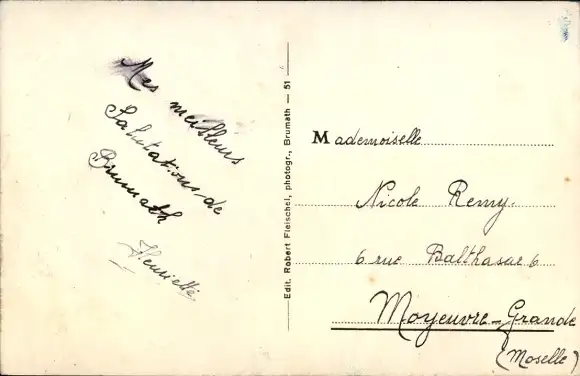 Mes meilleurs
Salutations de
Brumath
Henriette
Edit. Robert Fleischel, photogr., Brumath — 51
Mademoiselle
Nicole Remy.
6 rue Balthasar 6
Moyeuvre-Grande
(Moselle)